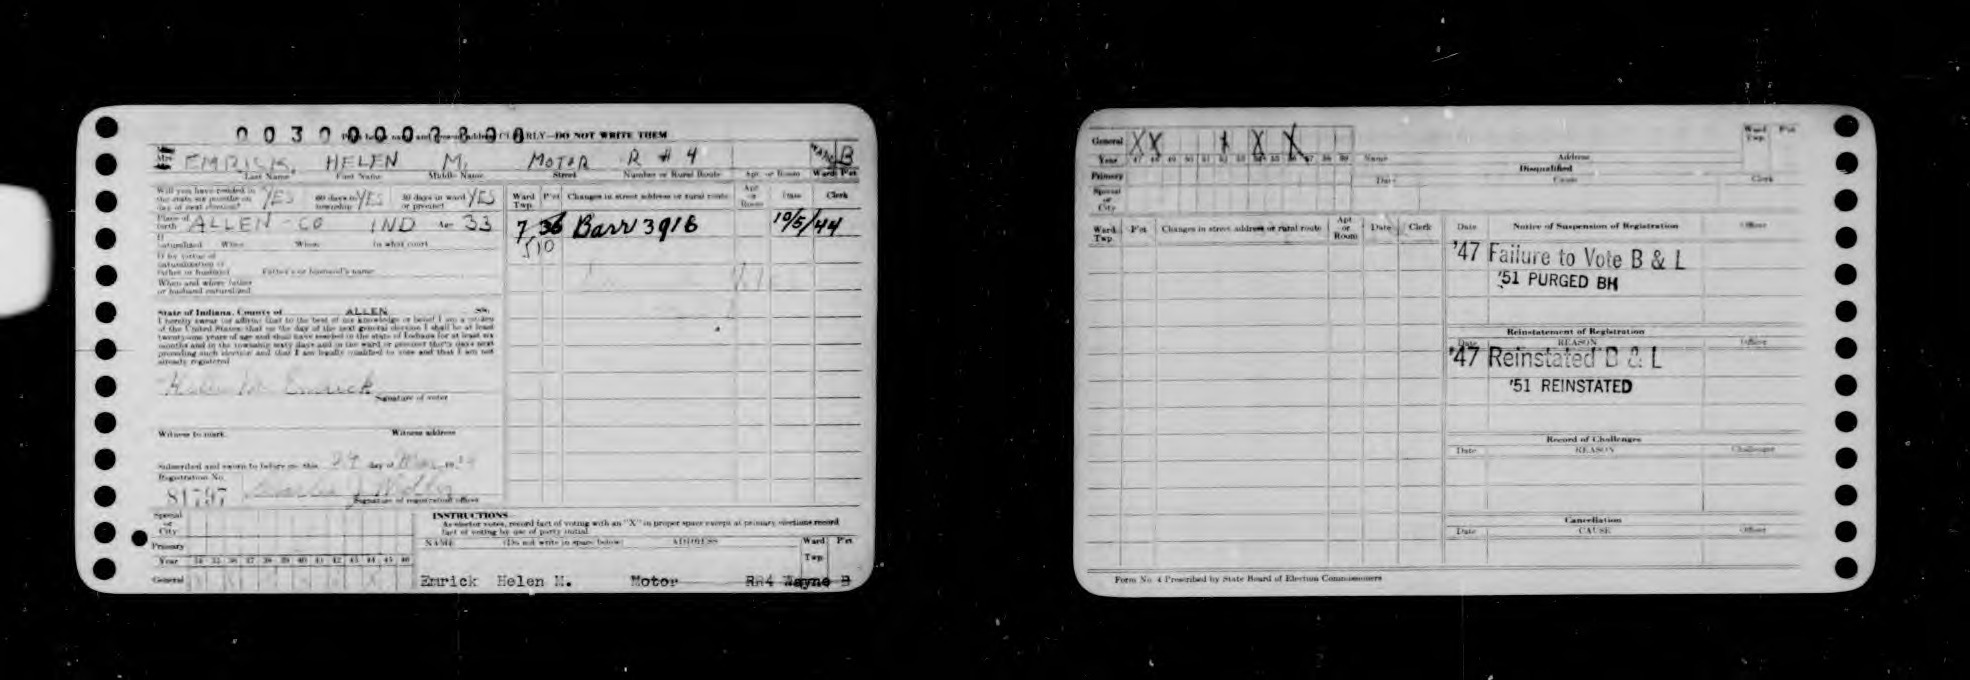 00300002808
Print below name and address CLEARLY—DO NOT WRITE THEM
Mrs. EMRICK, HELEN M. MOTOR R # 4 WAYNE B
Last Name First Name Middle Name Street Number or Rural Route Apt. or Room Ward P'ct
Will you have resided in
the state six months on
day of next election? YES 60 days in township YES 30 days in ward or precinct YES
Place of birth ALLEN - CO IND Age 33
If naturalized When Where In what court
If by virtue of
naturalization of
father or husband Father's or husband's name
When and where father
or husband naturalized
State of Indiana, County of ALLEN SS:
I hereby swear (or affirm) that to the best of my knowledge or belief I am a citizen
of the United States; that on the day of the next general election I shall be at least
twenty-one years of age and shall have resided in the state of Indiana for at least six
months and in the township sixty days and in the ward or precinct thirty days next
preceding such election and that I am legally qualified to vote and that I am not
already registered
Helen M. Emrick
Signature of voter
Witness to mark Witness address
Subscribed and sworn to before me this 29 day of Mar 19
Registration No.
81797
Signature of registration officer
Ward Twp. P'ct Changes in street address or rural route Apt. or Room Date Clerk
7 36 Barr 3916 10/5/44
510
Special or City
Primary
Year 34 35 36 37 38 39 40 41 42 43 44 45 46
General
INSTRUCTIONS
As elector votes, record fact of voting with an "X" in proper space except at primary elections record
fact of voting by use of party initial.
NAME (Do not write in space below) ADDRESS Ward Twp. P'ct
Emrick Helen M. Motor RR4 Wayne B
General X X X X X
Year 47 48 49 50 51 52 53 54 55 56 57 58 59
Primary
Special or City
Name Address Ward Twp. P'ct
Disqualified
Date Cause Clerk
Ward Twp. P'ct Changes in street address or rural route Apt. or Room Date Clerk
Date Notice of Suspension of Registration Officer
'47 Failure to Vote B & L
'51 PURGED BH
Reinstatement of Registration
Date REASON Officer
'47 Reinstated B & L
'51 REINSTATED
Record of Challenges
Date REASON Challenger
Cancellation
Date CAUSE Officer
Form No. 4 Prescribed by State Board of Election Commissioners